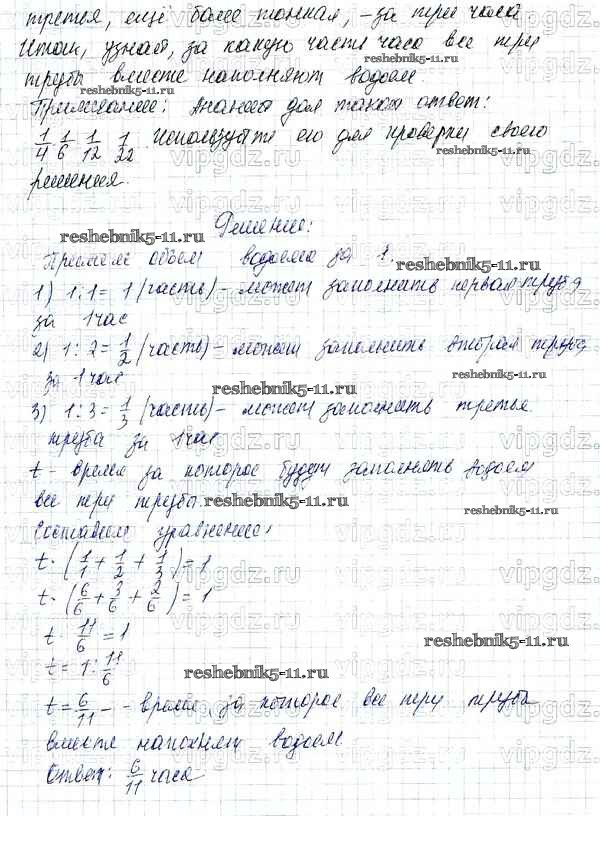 третья, ещё более тонкая, - за три часа
Итак, узнай, за какую часть часа все три
трубы вместе наполняют водоем.
Примечание: Анания дал такой ответ:
1/4 1/6 1/12 1/22. Используйте его для проверки своего
решения.
Решение:
Примем объем водоема за 1.
1) 1:1= 1 (часть) - может заполнить первая труба
за 1 час
2) 1:2= 1/2 (часть) - может заполнить вторая труба
за 1 час
3) 1:3= 1/3 (часть) - может заполнить третья
труба за 1 час
t - время за которое будут заполнять водоем
все три трубы.
Составим уравнение:
t· (1/1 + 1/2 + 1/3) = 1
t· (6/6 + 3/6 + 2/6) = 1
t· 11/6 = 1
t= 1: 11/6
t= 6/11 - - время, за которое все три трубы
вместе наполнят водоем
Ответ: 6/11 часа
reshebnik5-11.ru
vipgdz.ru